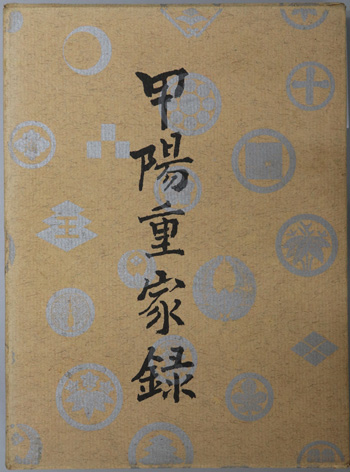 甲陽重家録